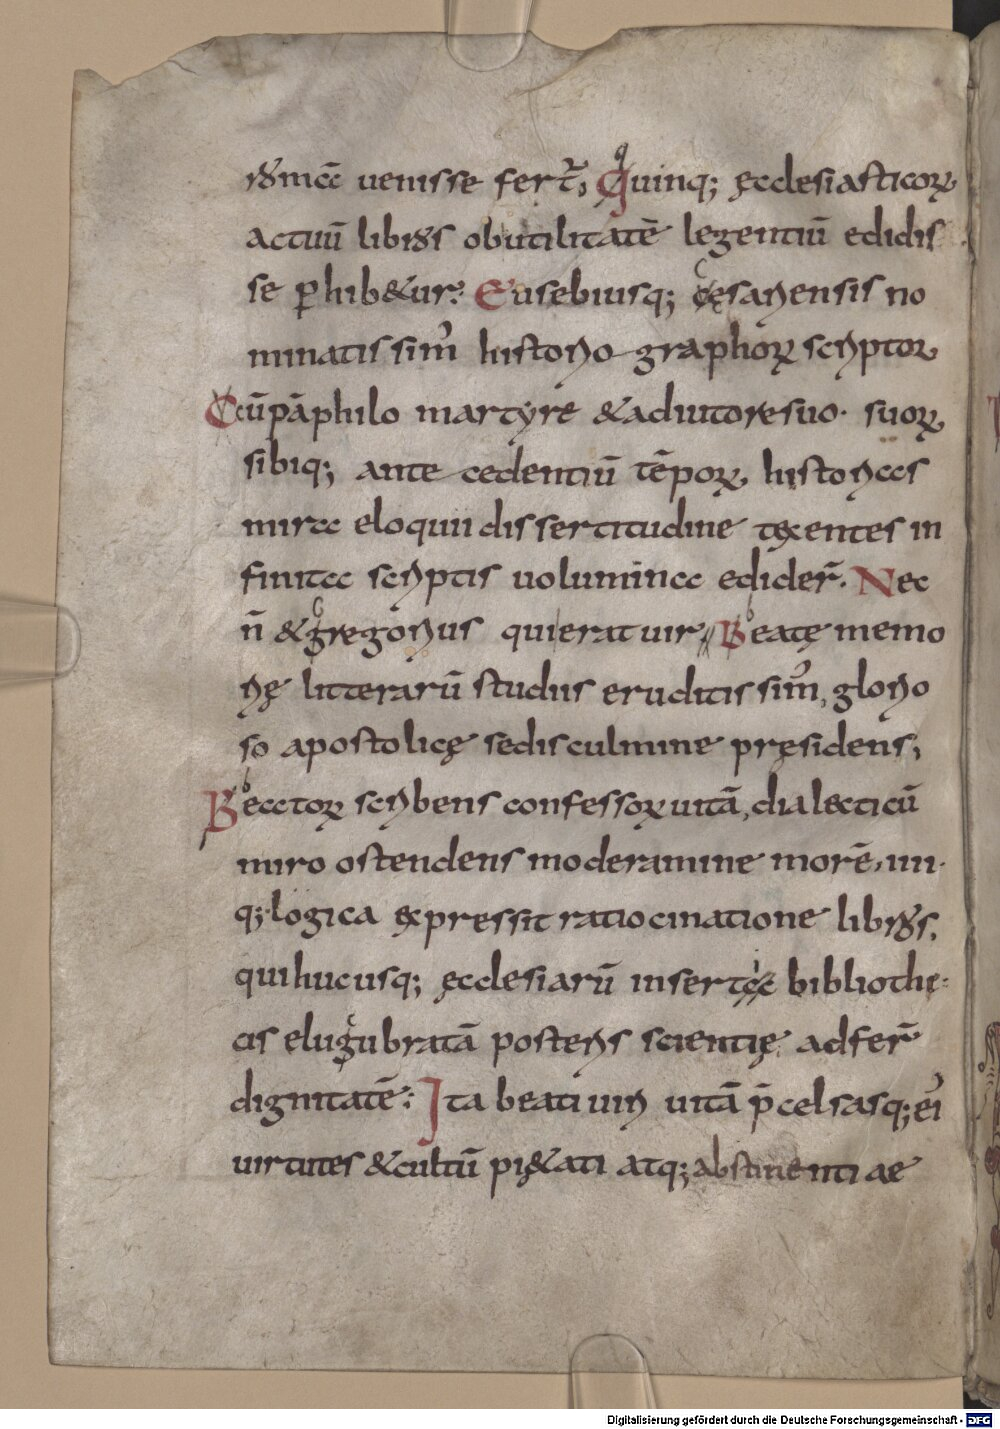 romā uenisse fert᷑; Quinq; ęcclesiasticoꝝ
actuū libros obutilitatē legentiū edidis
se ꝑhib&ur. Eusebiusq; cęsariensis no
minatissim᷒ historio graphoꝝ scriptoꝝ
Cū pāphilo martyre & adiutore suo. suoꝝ
sibiq; ante cedentiū tēpoꝝ historias
mira eloquii dissertitudine tęxentes in
finita scriptis uolumina edider̄. Nec
n̄ & gregorius qui erat uir Beatę memo
rię litterarū studiis eruditissim᷒, glorio
so apostolicę sedis culmine pręsidens;
Beatoꝝ scribens confessoꝝ uitā, dialecticū
miro ostendens moderamine morē, uni
q; logica expressit ratiocinatione libros,
qui hucusq; ęcclesiarū insertę bibliothe
cis elugubratā posteris scientię adfer̄
dignitatē. Ita beati uiri uitā p̄celsasq; ei᷒
uirtutes & cultū pi&ati atq; abstinentiae
Digitalisierung gefördert durch die Deutsche Forschungsgemeinschaft - DFG